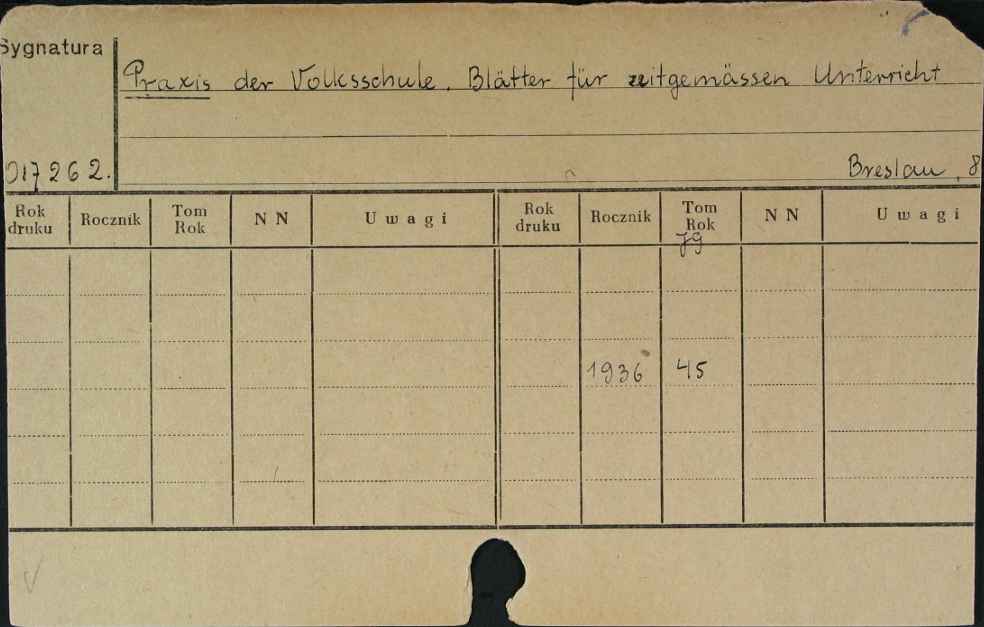 Sygnatura
Praxis der Volksschule. Blätter für zeitgemässen Unterricht
017262.
Breslau, 8
Rok druku Rocznik Tom Rok NN Uwagi Rok druku Rocznik Tom Rok NN Uwagi
Jg
1936 45